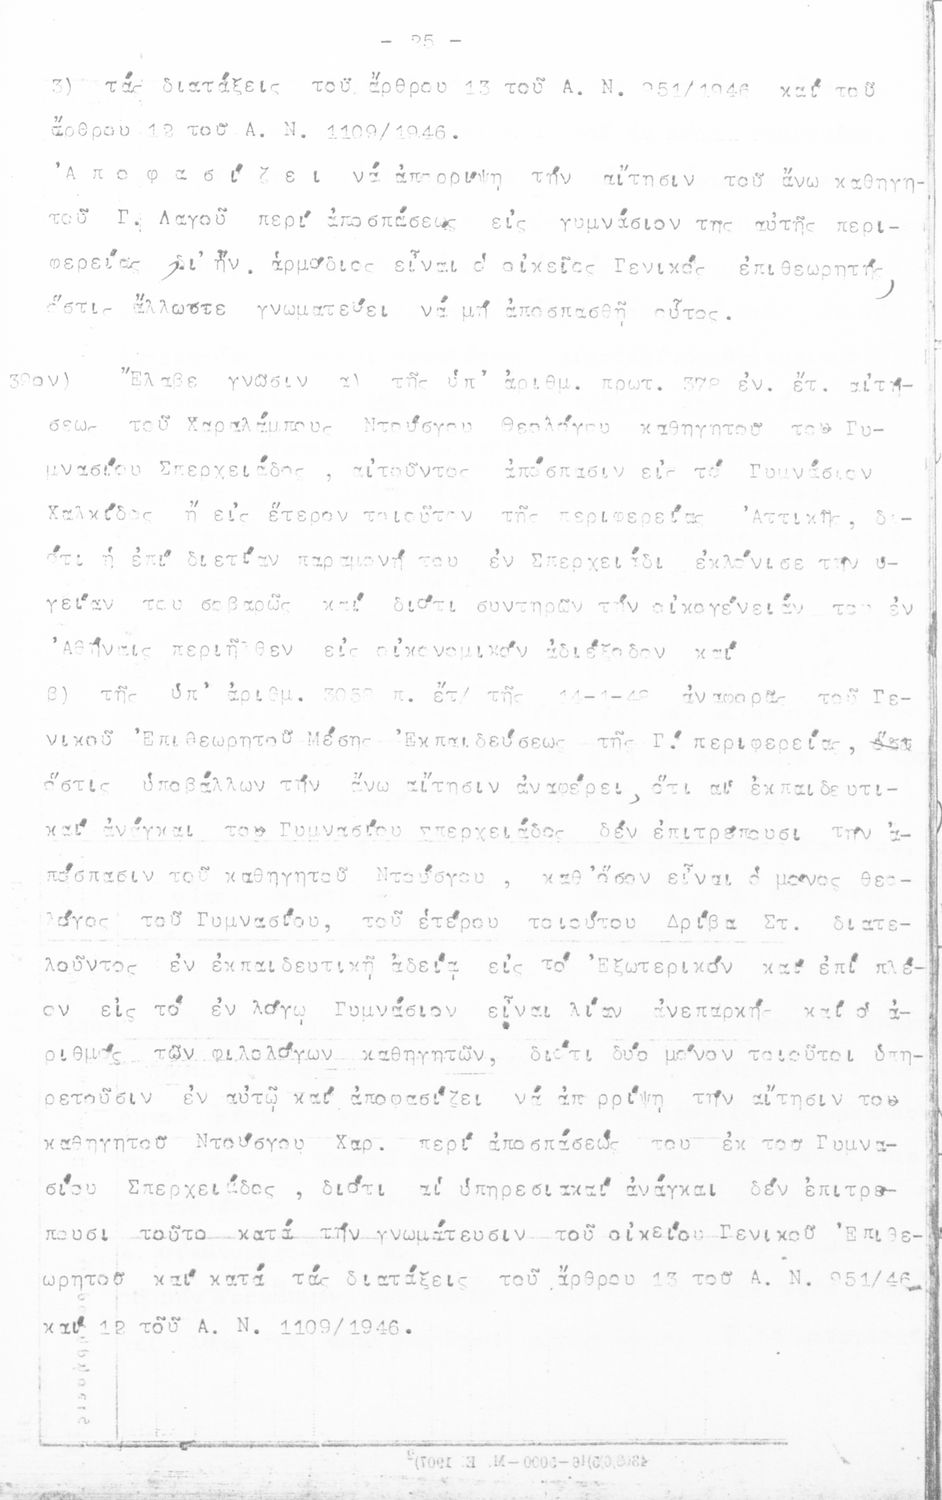 - 25 -
3) τάς διατάξεις τοῦ ἄρθρου 13 τοῦ Α. Ν. 251/1946 καί τοῦ
ἄρθρου 12 τοῦ Α. Ν. 1109/1946.
Ἀ π ο φ α σ ί ζ ε ι νά ἀπορρίψη τήν αἴτησιν τοῦ ἄνω καθηγη-
τοῦ Γ. Λαγοῦ περί ἀποσπάσεως εἰς γυμνάσιον της αὐτῆς περι-
φερείας δι' ἥν. ἁρμόδιος εἶναι ὁ οἰκεῖος Γενικός ἐπιθεωρητής,
ὅστις ἄλλωστε γνωματεύει νά μή ἀποσπασθῇ οὗτος.
39ον) Ἔλαβε γνῶσιν α) τῆς ὑπ' ἀριθμ. πρωτ. 378 ἐν. ἔτ. αἰτή-
σεως τοῦ Χαραλάμπους Ντούσγου Θεολόγου καθηγητοῦ του Γυ-
μνασίου Σπερχειάδος , αἰτοῦντος ἀπόσπασιν εἰς τό Γυμνάσιον
Χαλκίδος ἤ εἰς ἕτερον τοιοῦτον τῆς περιφερείας Ἀττικῆς, δι-
ότι ἡ ἐπί διετίαν παραμονή του ἐν Σπερχειάδι ἐκλόνισε την ὑ-
γείαν του σοβαρῶς καί διότι συντηρῶν τήν οἰκογένειάν του ἐν
Ἀθήναις περιῆλθεν εἰς οἰκονομικόν ἀδιέξοδον καί
β) τῆς ὑπ' ἀριθμ. 3058 π. ἔτ/ τῆς 14-1-48 ἀναφορᾶς τοῦ Γε-
νικοῦ Ἐπιθεωρητοῦ Μέσης Ἐκπαιδεύσεως τῆς Γ.' περιφερείας,
ὅστις ὑποβάλλων τήν ἄνω αἴτησιν ἀναφέρει, ὅτι αἱ ἐκπαιδευτι-
καί ἀνάγκαι του Γυμνασίου Σπερχειάδος δέν ἐπιτρέπουσι την ἀ-
πόσπασιν τοῦ καθηγητοῦ Ντούσγου , καθ' ὅσον εἶναι ὁ μόνος θεο-
λόγος τοῦ Γυμνασίου, τοῦ ἑτέρου τοιούτου Δρίβα Στ. διατε-
λοῦντος ἐν ἐκπαιδευτικῇ ἀδείᾳ εἰς τό Ἐξωτερικόν καί ἐπί πλέ-
ον εἰς τό ἐν λόγῳ Γυμνάσιον εἶναι λίαν ἀνεπαρκής καί ὁ ἀ-
ριθμός τῶν φιλολόγων καθηγητῶν, διότι δυο μόνον τοιοῦτοι ὑπη-
ρετοῦσιν ἐν αὐτῷ καί ἀποφασίζει νά ἀπ ρρίψη τήν αἴτησιν του
καθηγητοῦ Ντούσγου Χαρ. περί ἀποσπάσεώς του ἐκ τοῦ Γυμνα-
σίου Σπερχειάδος , διότι αἱ ὑπηρεσιακαί ἀνάγκαι δέν ἐπιτρέ-
πουσι τοῦτο κατά τήν γνωμάτευσιν τοῦ οἰκείου Γενικοῦ Ἐπιθε-
ωρητοῦ καί κατά τάς διατάξεις τοῦ ἄρθρου 13 τοῦ Α. Ν. 251/46
καί 12 τοῦ Α. Ν. 1109/1946.